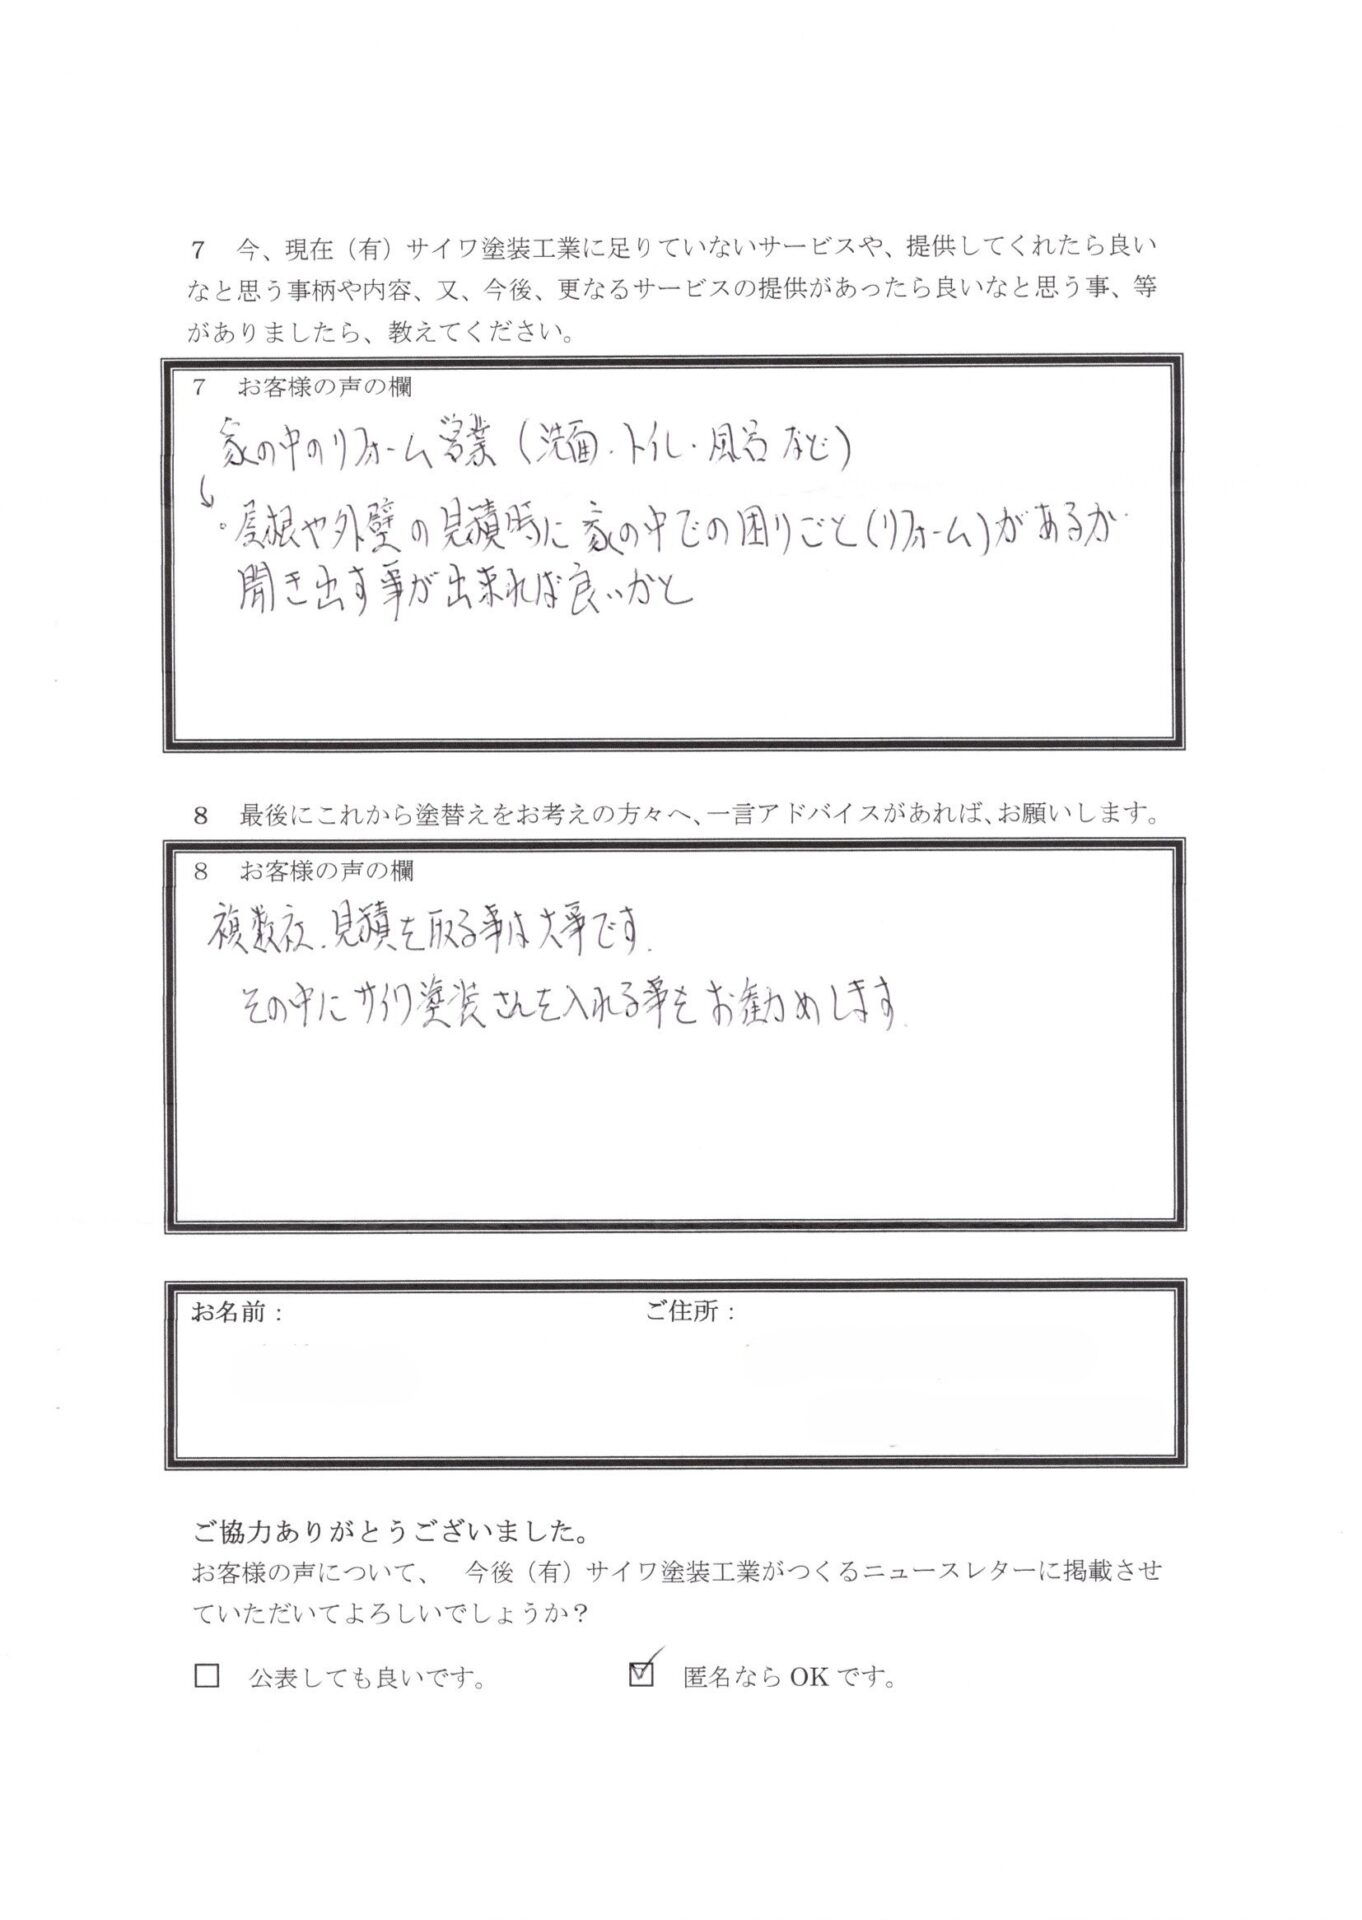 7 今、現在（有）サイワ塗装工業に足りていないサービスや、提供してくれたら良い
なと思う事柄や内容、又、今後、更なるサービスの提供があったら良いなと思う事、等
がありましたら、教えてください。
7 お客様の声の欄
家の中のリフォーム営業（洗面・トイレ・風呂など）
↓。屋根や外壁の見積時に家の中での困りごと（リフォーム）があるか
聞き出す事が出来れば良いかと
8 最後にこれから塗替えをお考えの方々へ、一言アドバイスがあれば、お願いします。
8 お客様の声の欄
複数社、見積を取る事は大事です.
その中にサイワ塗装さんを入れる事をお勧めします.
お名前： ご住所：
ご協力ありがとうございました。
お客様の声について、 今後（有）サイワ塗装工業がつくるニュースレターに掲載させ
ていただいてよろしいでしょうか？
□ 公表しても良いです。 ☑ 匿名なら OK です。